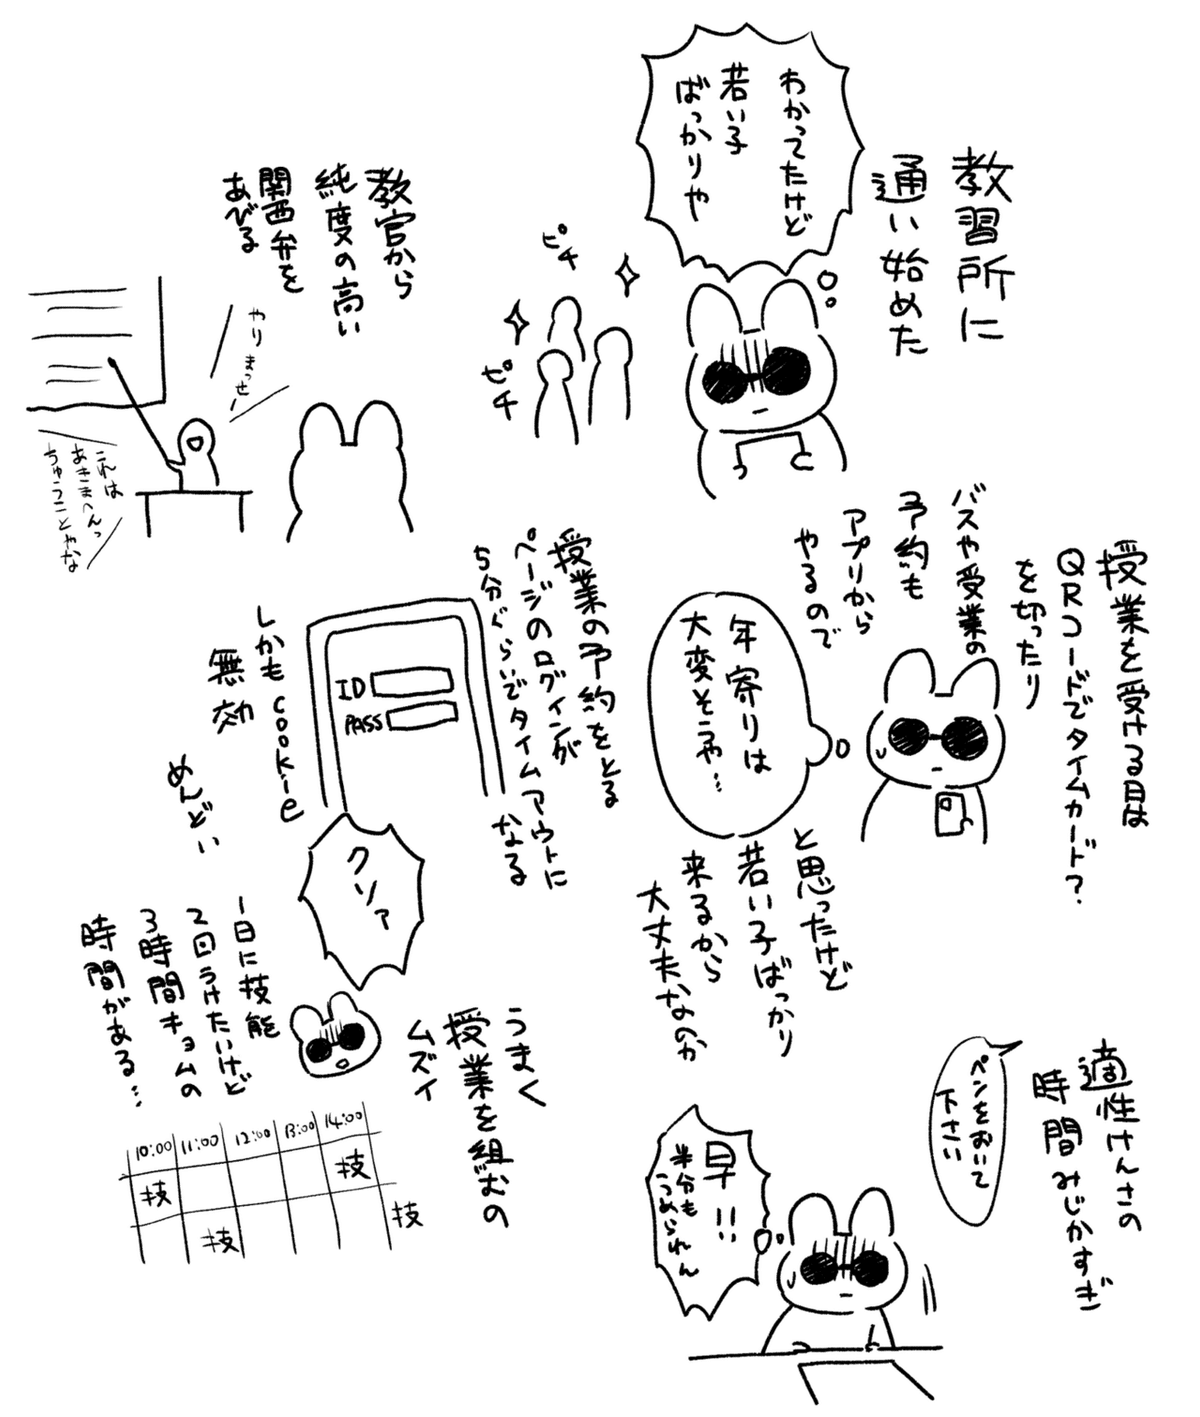 教習所に
通い始めた
わかってたけど
若い子
ばっかりや
ピチ
ピチ
授業を受ける日は
QRコードでタイムカード?
を切ったり
バスや授業の
予約も
アプリから
やるので
年寄りは
大変そうや…
と思ったけど
若い子ばっかり
来るから
大丈夫なのか
適性けんさの
時間みじかすぎ
ペンをおいて
下さい
早!!
半分も
うめられれん
教官から
純度の高い
関西弁を
あびる
やりまっせー
これは
あきまへんっ
ちゅうことやな
授業の予約をとる
ページのログインが
5分ぐらいでタイムアウトに
なる
ID
PASS
しかもcookie
無効
めんどい
クソァ
うまく
授業を組むの
ムズイ
1日に技能
2回うけたいけど
3時間キョムの
時間がある…
10:00 11:00 12:00 13:00 14:00
技 技
技 技